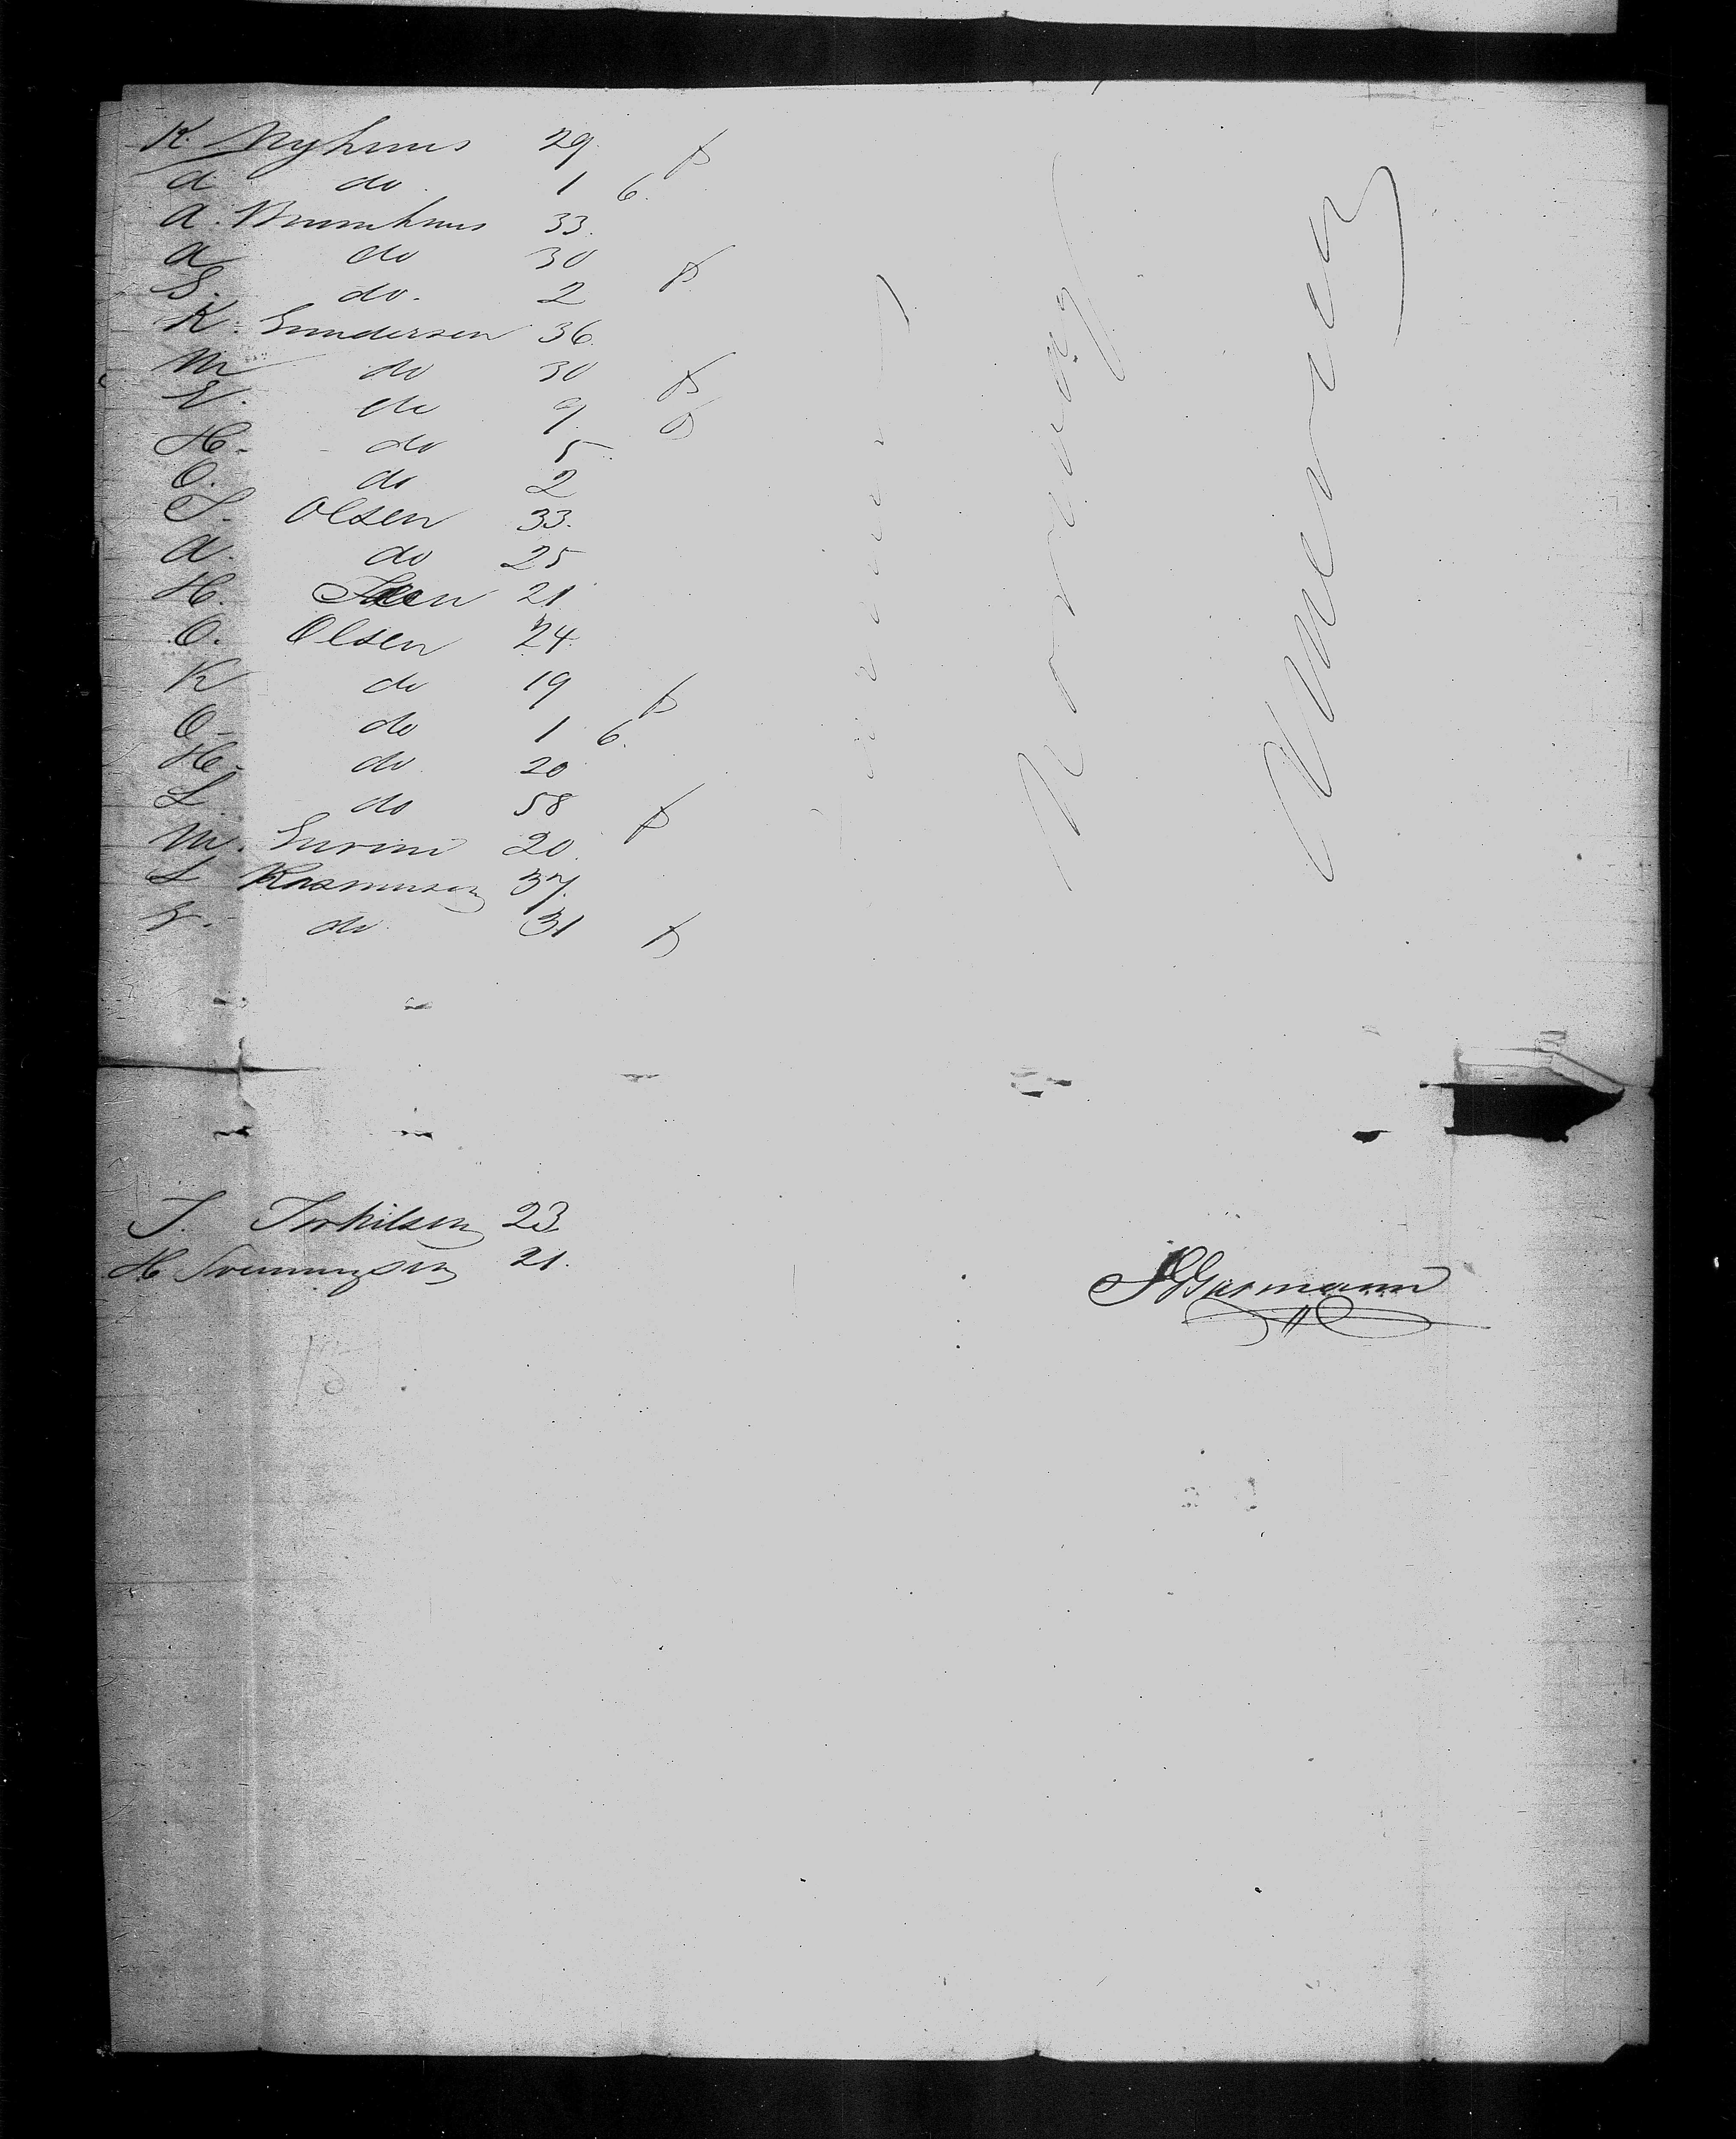 K. Nyhuus 29. f
A do. 1 6.
A. Bruunhuus 33.
A do 30 f
S. do. 2
K. Gundersen 36.
M do 30 f
do 9. f
H. do 5.
O. do 2
S. Olsen 33.
A. do 25
H. 21
O. Olsen 24.
K do 19 f
O. do 1 6.
H. do. 20
L do 58 f
M. 20.
L Rasmusen 37.
do. 31 f
T. Torkilsen 23
H Svenningsen 21.
Norway
America